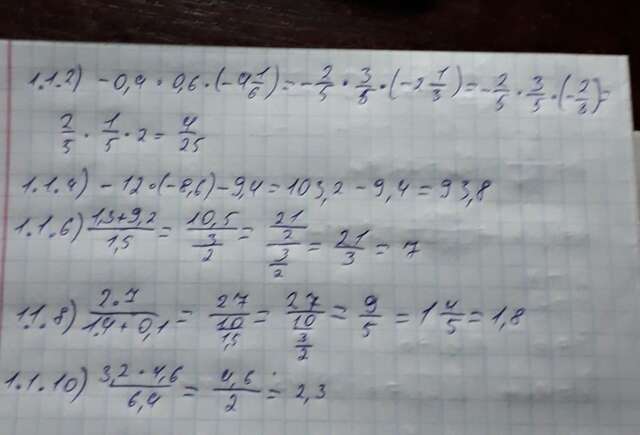 1.1.2) -0,4 · 0,6 · (-4 1/6) = -2/5 · 3/5 · (-2 1/3) = -2/5 · 3/5 · (-2/3) =
2/5 · 1/5 · 2 = 4/25
1.1.4) -12 · (-8,6) - 9,4 = 103,2 - 9,4 = 93,8
1.1.6) (1,3+9,2)/1,5 = 10,5/(3/2) = (21/2)/(3/2) = 21/3 = 7
1.1.8) 2.7/(1,4+0,1) = (27/10)/1,5 = (27/10)/(3/2) = 9/5 = 1 4/5 = 1,8
1.1.10) (3,2 · 4,6)/6,4 = 4,6/2 = 2,3